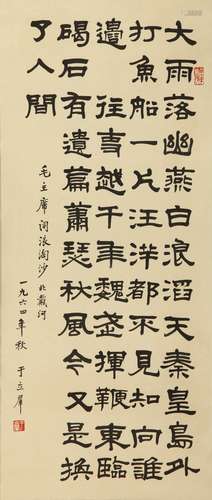 大雨落幽燕白浪滔天秦皇島外
打魚船一片汪洋都不見知向誰
邊 往事越千年魏武揮鞭東臨
碣石有遺篇蕭瑟秋風今又是換
了人間
毛主席词浪淘沙 北戴河
一九六四年秋 于立羣